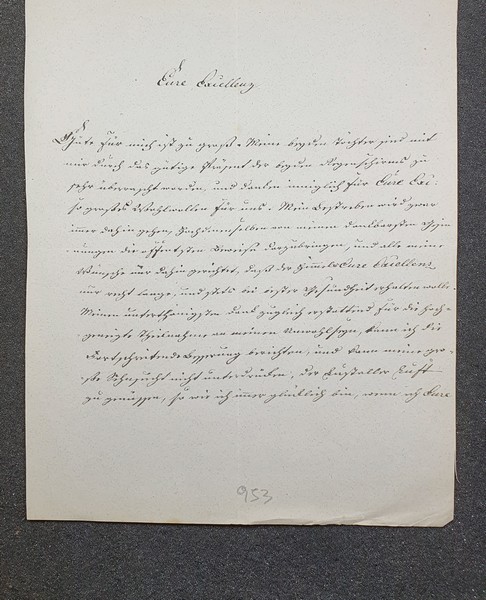 Eure Excellenz
Güte für mich ist zu groß. Meine beyden Töchter sind mit
mir durch das gütige Präsent der beyden Regenschirme zu
sehr überrascht worden, und danken inniglich für Eure Exc:
so großes Wohlwollen für uns. Mein Bestreben wird zwar
immer dahin gehen, Hochdenselben von meinen dankbarsten Gesin
nungen die Beweise darzubringen, und alle meine
Wünsche nur dahin gerichtet, daß der Himmel Eure Excellenz
nur recht lange, und stets bei bester Gesundheit erhalten wolle.
Meinen unterthänigsten Dank zugleich erstattend für die hoch-
geneigte Theilnahme an meinem Unwohlseyn, kann ich die
fortschreitende Besserung berichten, und kann meine gro-
ße Sehnsucht nicht unterdrücken, der Luft
zu genießen, so wie ich immer glücklich bin, wenn ich Eure
953